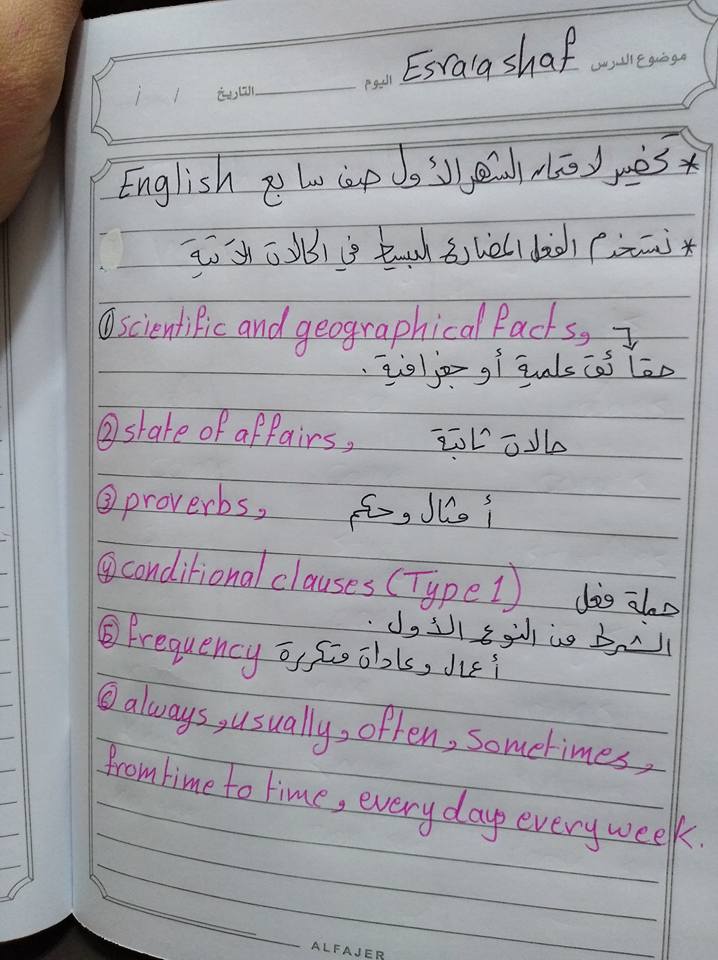 موضوع الدرس Esra'a shaf اليوم التاريخ / /
* تحضير لامتحان الشهر الأول صف سابع English
* نستخدم الفعل المضارع البسيط في الحالات الآتية
① scientific and geographical facts,
حقائق علمية أو جغرافية .
② state of affairs, حالات ثابتة
③ proverbs, أمثال وحكم
④ conditional clauses (Type 1) جملة فعل
الشرط من النوع الأول .
⑤ frequency أعمال وعاداة متكررة
⑥ always, usually, often, sometimes,
from time to time, every day, every week.
ALFAJER